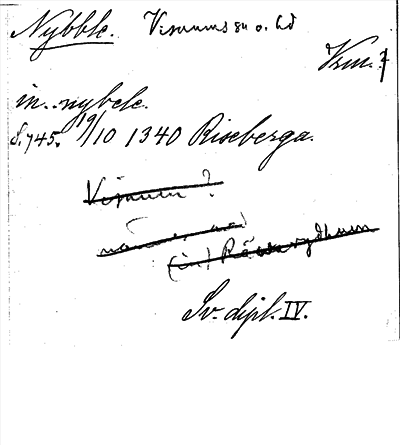 Nybble. Visnums sn o. hd
Vrm.
in nybele.
S. 745. 19/10 1340 Riseberga.
Visnum?
(in)
Sv. dipl. IV.